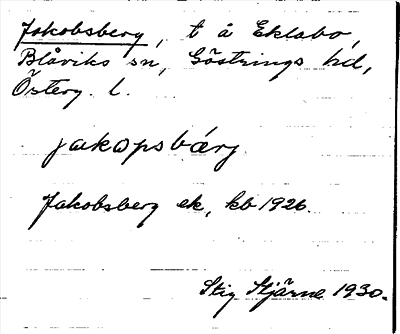 Jakobsberg, t å Eklabo,
Blåviks sn, Göstrings hd,
Österg. l.
jakopsbárj
Jakobsberg ek, kb 1926.
Stig Stjärne 1930.